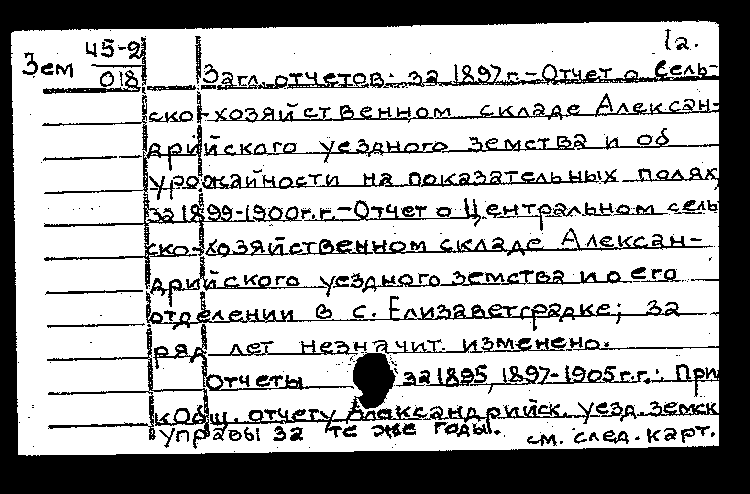 1а.
Зем 45-2
018
Загл. отчетов: за 1897 г. - Отчет о сель-
ско-хозяйственном складе Алексан-
дрийского уездного земства и об
урожайности на показательных полях,
за 1899-1900 г.г. - Отчет о Центральном сель
ско-хозяйственном складе Алексан-
дрийского уездного земства и о его
отделении в с. Елизаветградке; за
ряд лет незначит. изменено.
Отчеты за 1895, 1897-1905 г.г.: При
к Общ. отчету Александрийск. уезд. земск
управы за те же годы. см. след. карт.